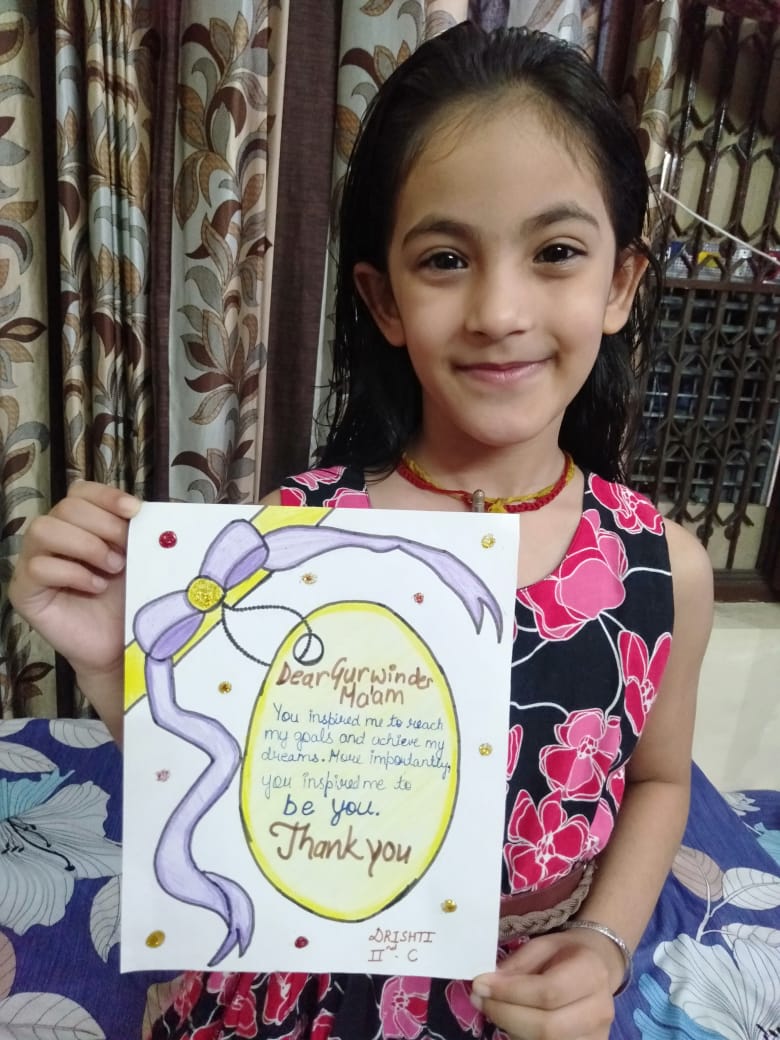 Dear Gurwinder
Ma'am
You inspired me to reach
my goals and achieve my
dreams. More importantly,
you inspired me to
be you.
Thank you
DRISHTI
IInd - C